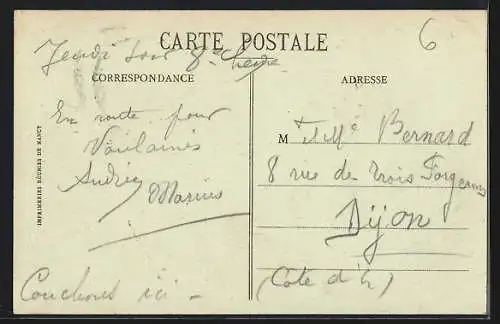 6
CARTE POSTALE
Jeudi soir 8e heure
CORRESPONDANCE
ADRESSE
En route pour
Vaulaines
Andrée
Marius
Couchons ici -
IMPRIMERIES RÉUNIES DE NANCY
M Bernard
8 rue des Trois Forgerons
Dijon
(Côte d'Or)